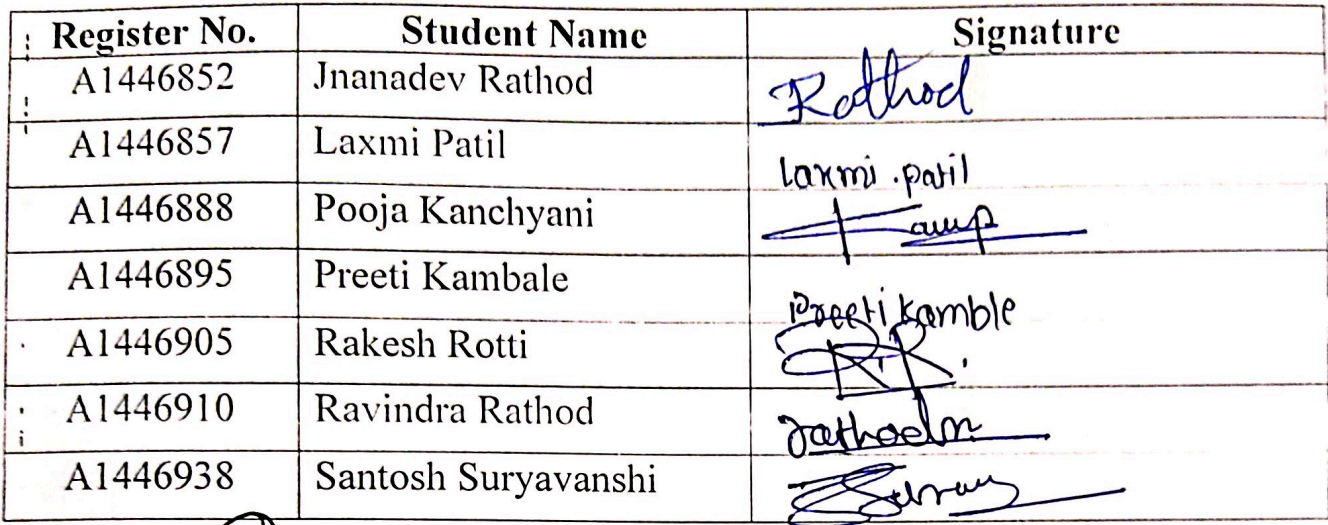 Register No. Student Name Signature
A1446852 Jnanadev Rathod Rathod
A1446857 Laxmi Patil Laxmi.patil
A1446888 Pooja Kanchyani
A1446895 Preeti Kambale Preeti Kamble
A1446905 Rakesh Rotti R.R.
A1446910 Ravindra Rathod
A1446938 Santosh Suryavanshi